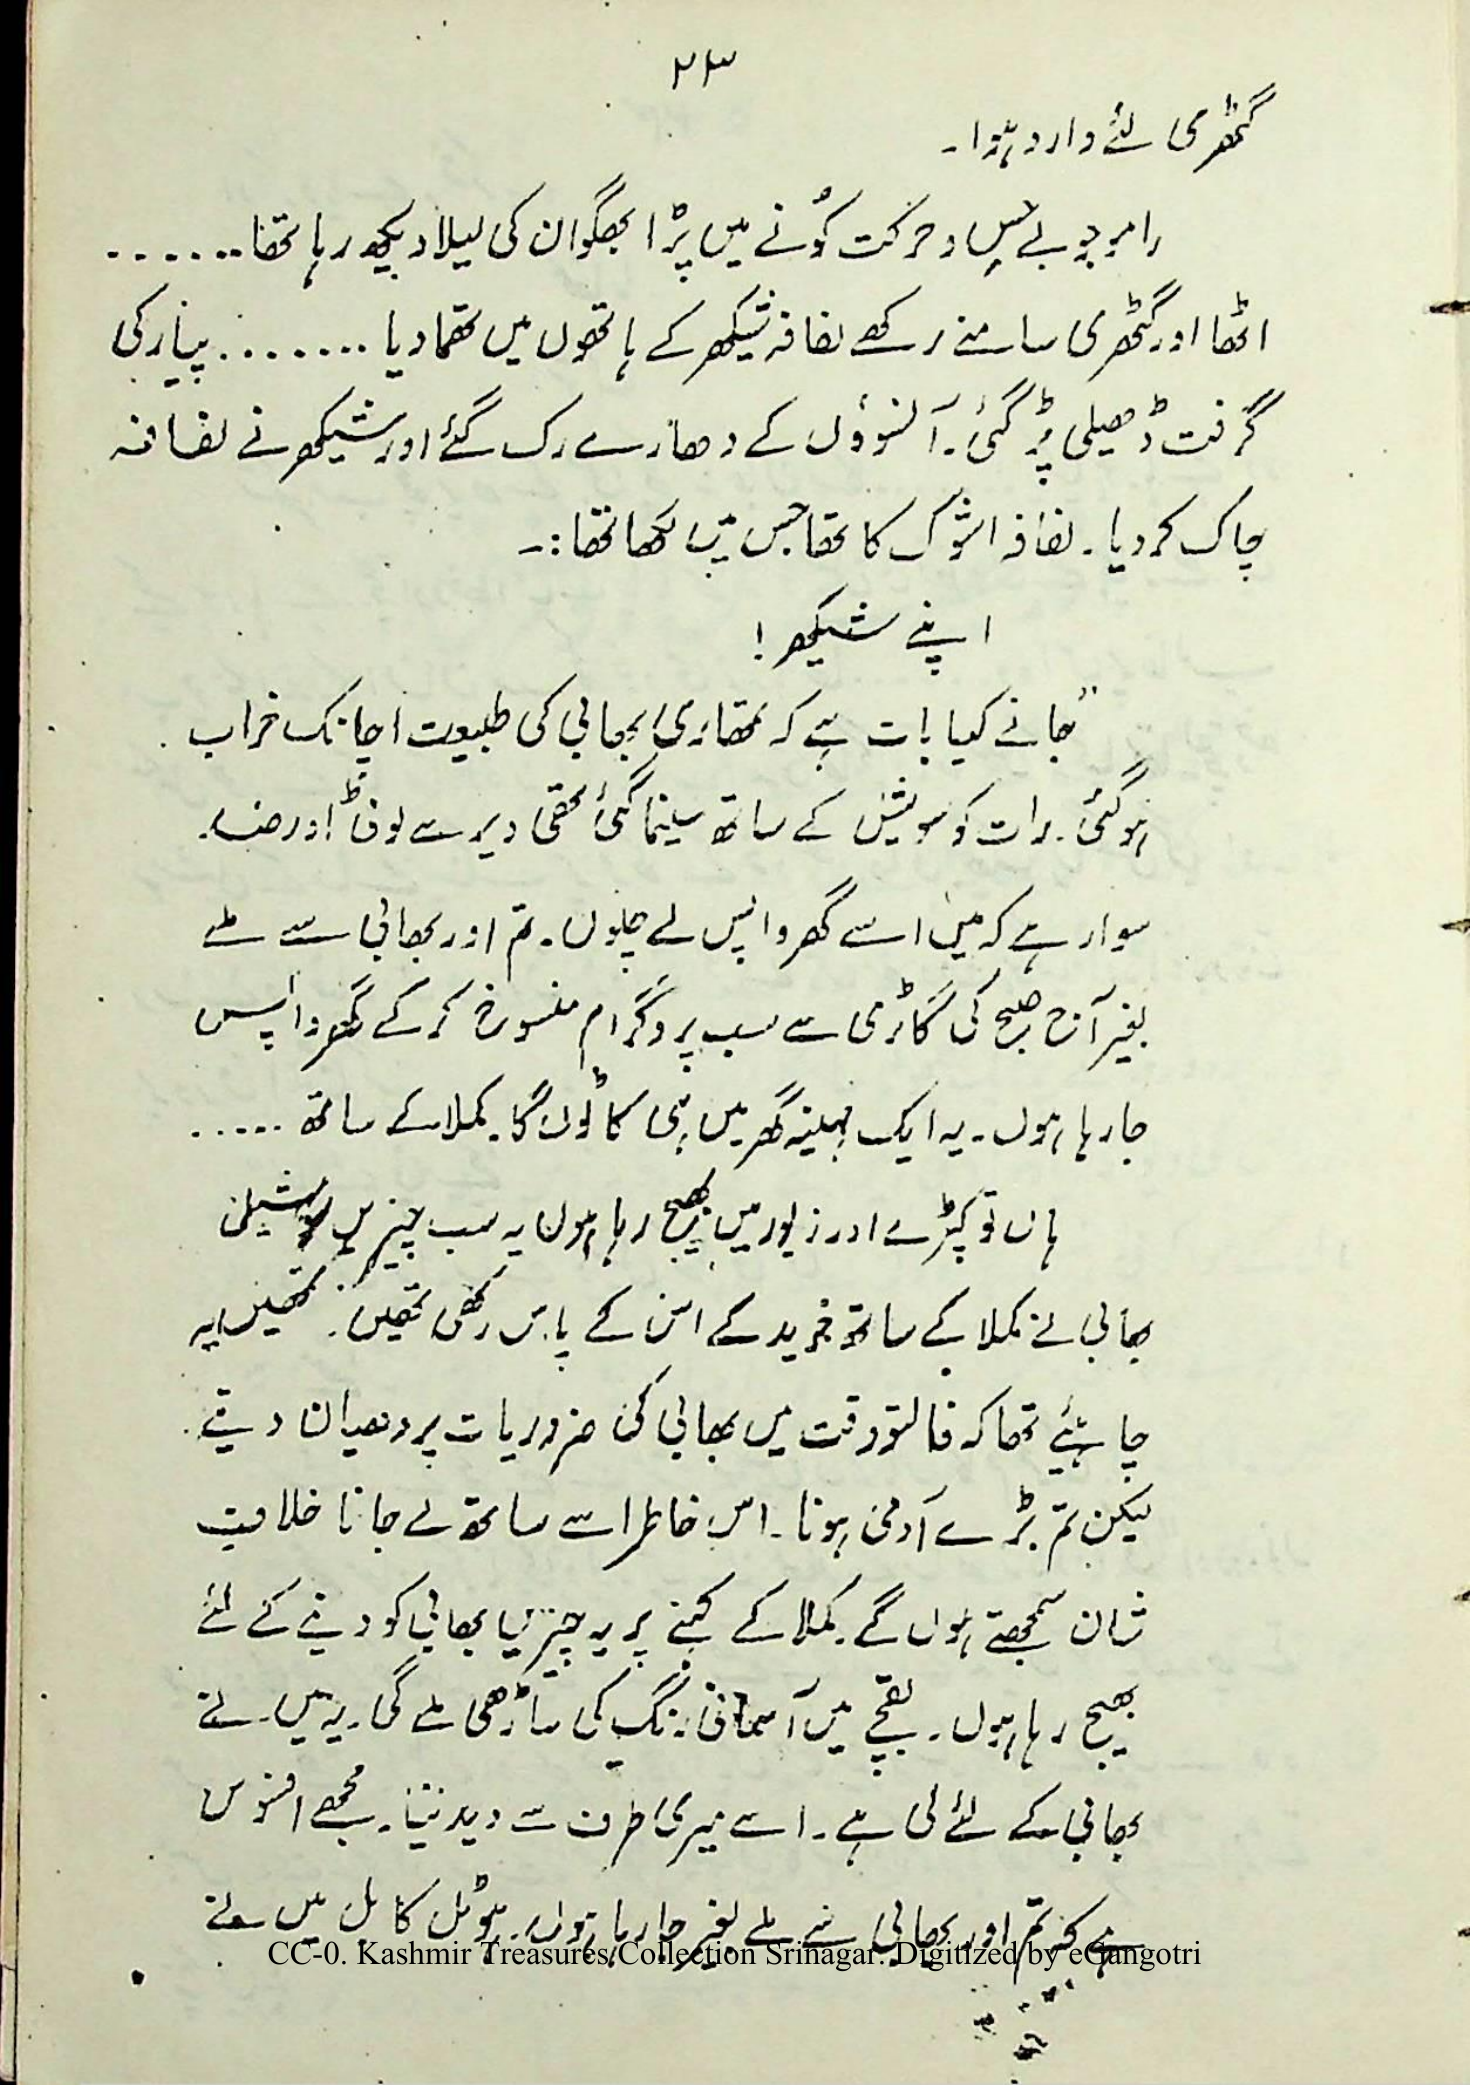 ۲۳
گٹھڑی لئے وارد ہوا۔
رامو جو بے حس و حرکت کونے میں پڑا بھگوان کی لیلا دیکھ رہا تھا.......
اٹھا اور گٹھڑی سامنے رکھے لفافہ شیکھر کے ہاتھوں میں تھما دیا ........ پیار کی
گرفت ڈھیلی پڑ گئی۔ آنسوؤں کے دھارے رک گئے اور شیکھر نے لفافہ
چاک کر دیا۔ لفافہ اشوک کا تھا جس میں لکھا تھا:۔
اپنے شیکھر!
"جانے کیا بات ہے کہ تمھاری بھابی کی طبیعت اچانک خراب
ہوگئی۔ رات کو سوشیل کے ساتھ سینما گئی تھی دیر سے لوٹی اور ضد
سوار ہے کہ میں اسے گھر واپس لے چلوں۔ تم اور بھابی سے ملے
بغیر آج صبح کی گاڑی سے سب پروگرام منسوخ کر کے گھر واپس
جا رہا ہوں۔ یہ ایک مہینہ گھر میں ہی کاٹوں گا۔ کملا کے ساتھ .....
ہاں تو کپڑے اور زیور میں بھیج رہا ہوں یہ سب چیزیں سوشیلن
بھابی نے کملا کے ساتھ خرید کے اس کے پاس رکھی تھیں۔ تمھیں یہ
چاہئیے تھا کہ فالتو وقت میں بھابی کی ضروریات پر دھیان دیتے۔
لیکن تم بڑے آدمی ہونا۔ اس خاطر اسے ساتھ لے جانا خلافِ
شان سمجھتے ہوں گے۔ کملا کے کہنے پر یہ چیزیں بھابی کو دینے کے لئے
بھیج رہا ہوں۔ بقچے میں آسمانی رنگ کی ساڑھی ملے گی۔ یہ میں نے
بھابی کے لئے لی ہے۔ اسے میری طرف سے دیدینا۔ مجھے افسوس
ہے کہ تم اور بھابی سے ملے بغیر جا رہا ہوں۔ ہوٹل کا بل میں نے
CC-0. Kashmir Treasures Collection Srinagar. Digitized by eGangotri